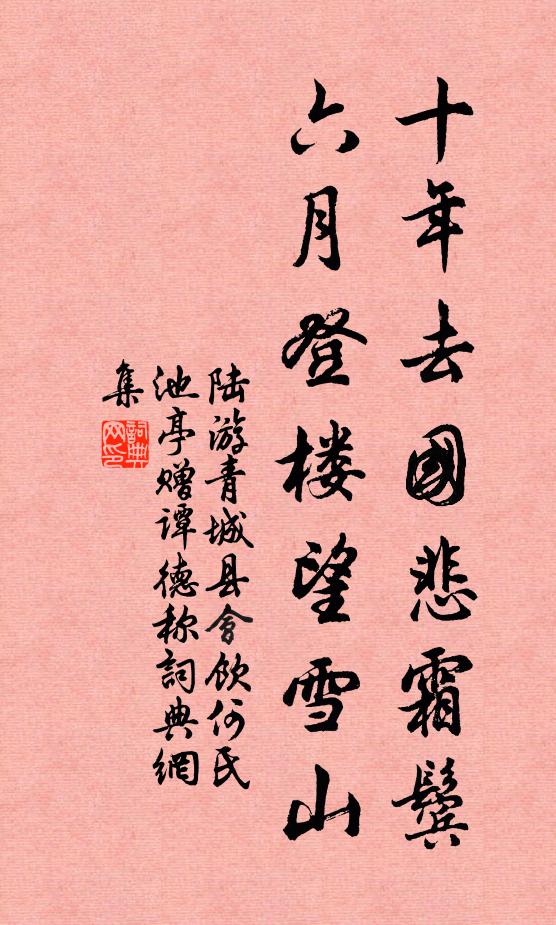 十年去國悲霜鬓
六月登楼望雪山
陆游青城县会饮何氏
池亭赠谭德称詞典網
集
詞典网印